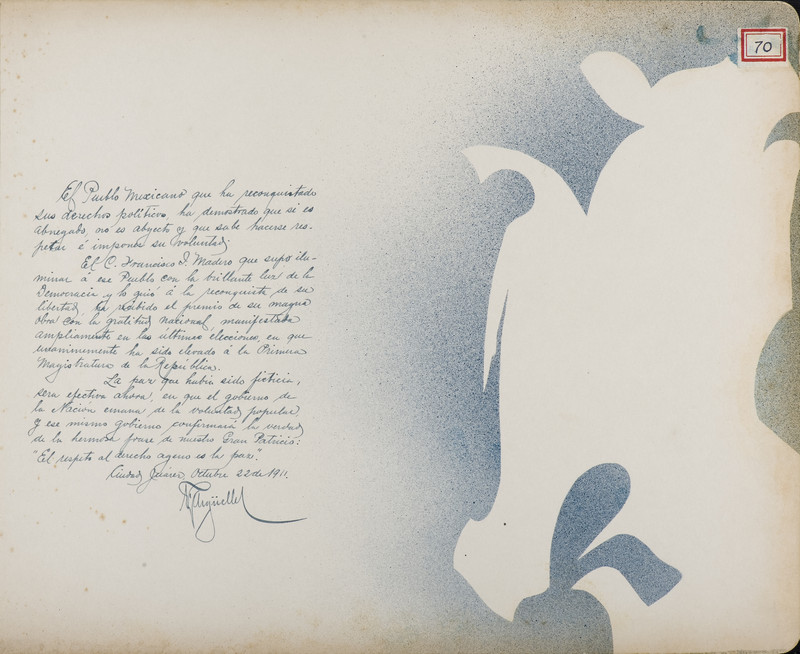 70
El Pueblo Mexicano que ha reconquistado
sus derechos políticos, ha demostrado que si es
abnegado, no es abyecto y que sabe hacerse res-
petar é imponer su voluntad.
El C. Francisco I. Madero que supo ilu-
minar á ese Pueblo con la brillante luz de la
Democracia y lo guió á la reconquista de su
libertad, ha recibido el premio de su magna
obra con la gratitud nacional, manifestada
ampliamente en las últimas elecciones, en que
unanimemente ha sido elevado á la Primera
Magistratura de la República.
La paz que habia sido ficticia,
sera efectiva ahora, en que el gobierno de
la Nación emana de la voluntad popular
Y ese mismo gobierno confirmará la verdad
de la hermosa frase de nuestro Gran Patricio:
"El respeto al derecho ageno es la paz".
Ciudad Juárez Octubre 22 de 1911.
Argüelles